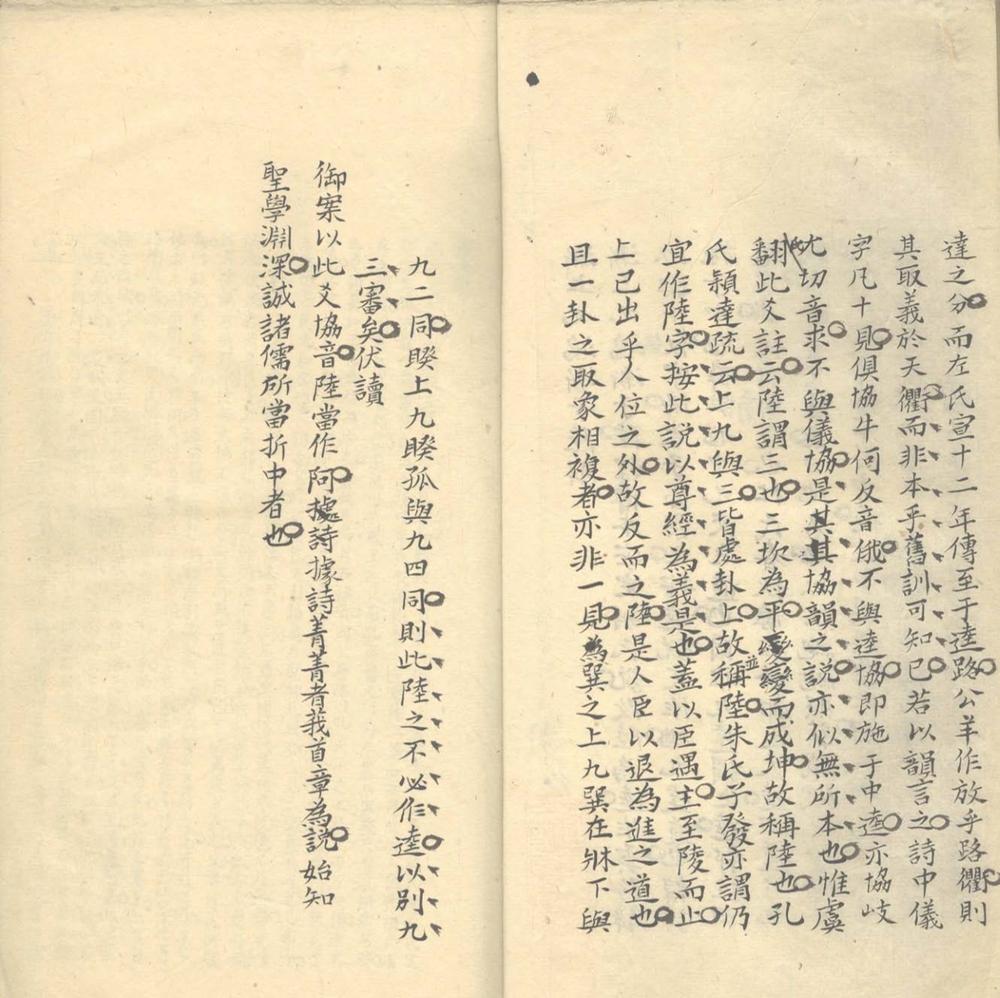 達之分而左氏宣十二年傳至于逵路公羊作放乎路衢則
其取義於天衢而非本乎舊訓可知已若以韻言之詩中儀
字凡十見俱協牛何反音俄不與逵協即施于中逵亦協岐
尤切音求不與儀協是其其協韻之說亦似無所本也惟虞
氏翻此爻註云陸謂三也三坎為平變變而成坤故稱陸也孔
氏穎達疏云上九與三皆處卦上故並稱陸朱氏子發亦謂仍
宜作陸字按此說以尊經為義是也蓋以臣遇主至陵而止
上已出乎人位之外故反而之陸是人臣以退為進之道也
且一卦之取象相複者亦非一見為巽之上九巽在牀下與
九二同睽上九睽孤與九四同則此陸之不必作逵以別九
三審矣伏讀
御案以此爻協音陸當作阿據詩據詩菁菁者莪首章為說始知
聖學淵深誠諸儒所當折中者也